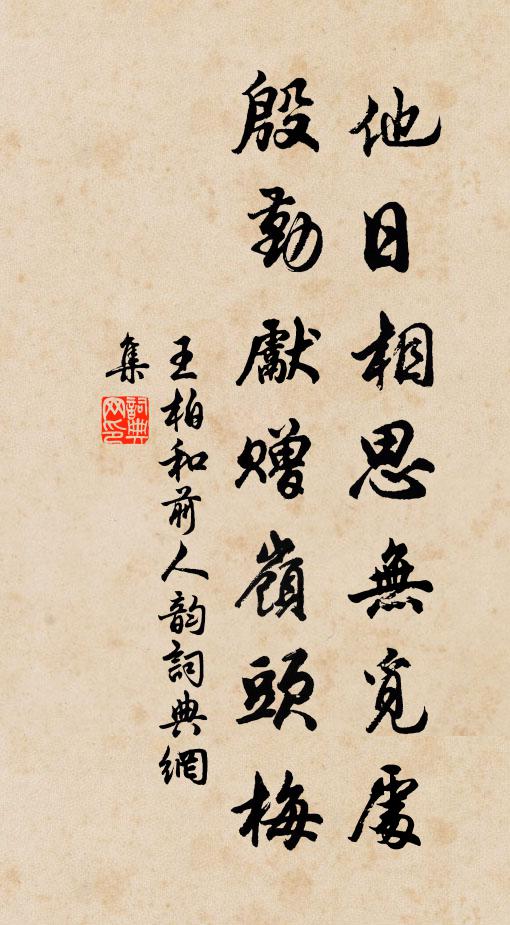 他日相思無覓處
殷勤獻贈嶺頭梅
王柏和前人韵詞典網
集
詞典网印